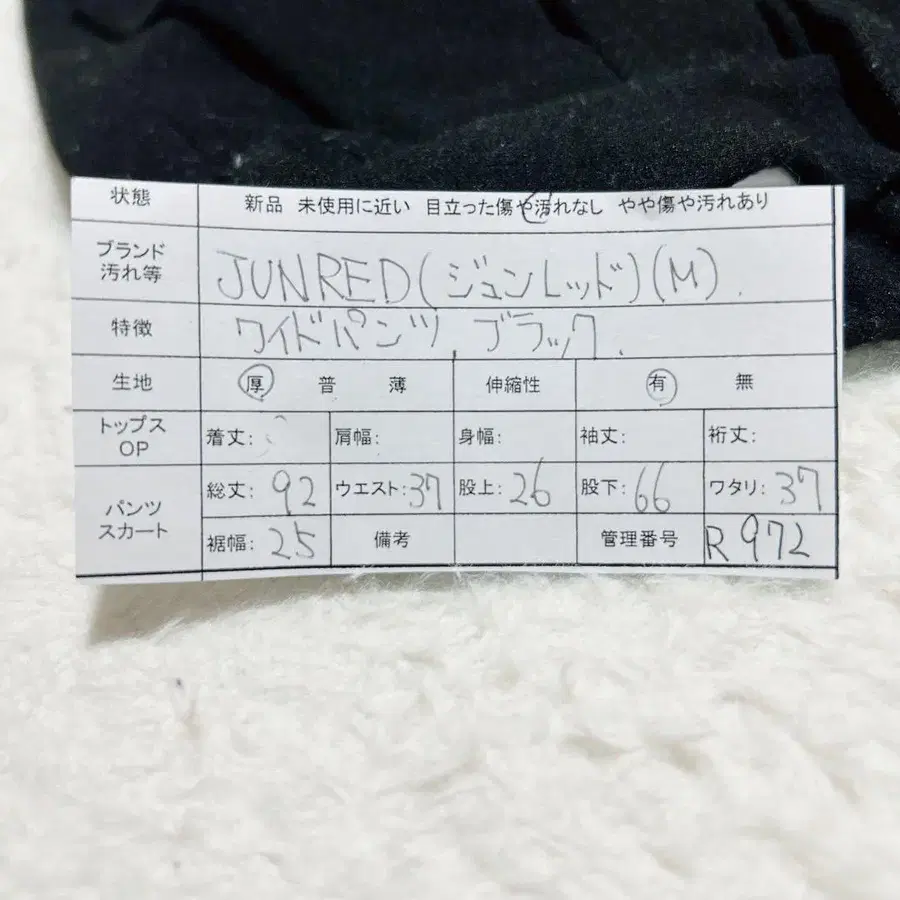 状態 新品 未使用に近い 目立った傷や汚れなし やや傷や汚れあり
ブランド
汚れ等 JUNRED(ジュンレッド)(M).
特徴 ワイドパンツ, ブラック.
生地 厚 普 薄 伸縮性 有 無
トップス
OP 着丈: 肩幅: 身幅: 袖丈: 裄丈:
パンツ
スカート 総丈: 92 ウエスト: 37 股上: 26 股下: 66 ワタリ: 37
裾幅: 25 備考 管理番号 R972